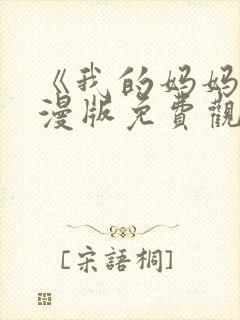 《我的妈妈
漫版免費觀
[宋語桐]